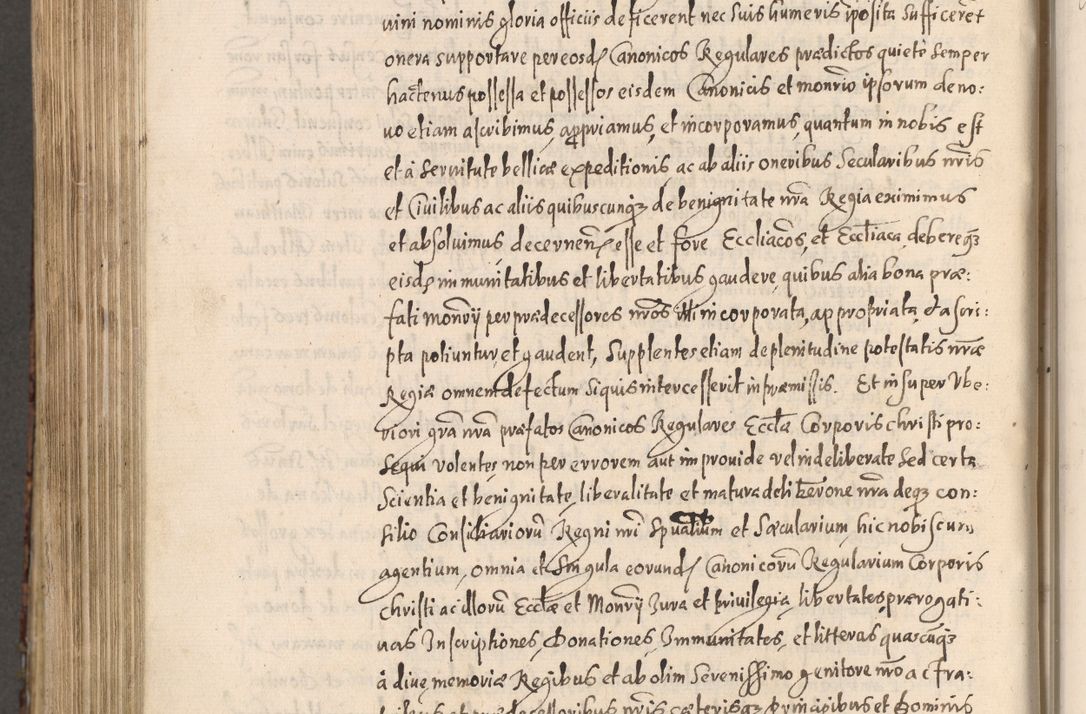 vini nominis gloria officiis deficerent nec suis humeris īposita sufficeret
onera supportare per eosd. Canonicos Regulares prædictos quietè semper
hactenus possessa et possessos eisdem Canonicis et monrio ipsorum de no:
vo etiam ascribimus, appriamus, et incorporamus, quantum in nobis est
et à servitute bellicæ expeditionis, ac ab aliis oneribus secularibus nris
et Civilibus ac aliis quibuscunq; de benignitate nra Regia eximimus
et absolvimus, decernen. esse et fore Eccliacos, et Eccliaca, debereq;
eisd. immunitatibus et libertatibus gaudere, quibus alia bona præ:
fati monrij per prædecessores nros illi incorporata, appropriata, et ascri:
pta potiuntur, et gaudent, Supplentes etiam de plenitudine potestatis nræ
Regiæ omnem defectum siquis intercesserit in præmissis. Et insuper Vbe:
riori gra nra præfatos Canonicos Regulares Ecclæ Corporis christi pro:
sequi volentes, non per errorem aut improvide vel indeliberate sed certa
Scientia et benignitate, liberalitate et matura deliberone nra deq; con:
silio Consiliariorū Regni nri Spualium et Sæcularium, hic nobiscum
agentium, omnia et Singula eorund. Canonicorū Regularium Corporis
Christi ac illorū Ecclæ et Monrij Jura et privilegia, libertates, prærogati:
vas Inscriptiones, Donationes, Immunitates, et litteras quascūq;
à divæ memoriæ Regibus et ab olim Serenissimo genitore nro ac Fra:
tribus et prædecessoribus nris cæterisq; Principibus et Dominis